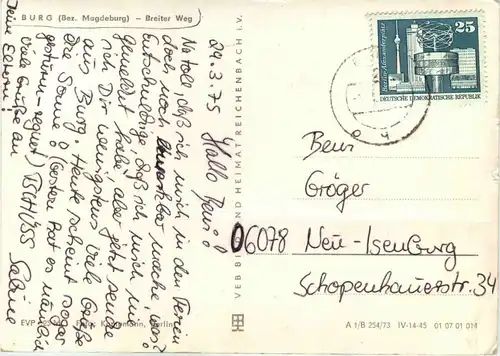 BURG (Bez. Magdeburg) – Breiter Weg
24.3.75
Hallo
Na toll, daß ich mich in den Ferien
doch noch bemerkbar mache, was?
Entschuldige, daß ich mich nie
gemeldet habe, aber jetzt sende
ich Dir wenigstens viele Grüße
aus Burg. Heute scheint sogar
Die Sonne. (gestern hat es nämlich
gestürmt + geregnet)
Viele Grüße an
Deine Eltern!
Sabine
25
DEUTSCHE DEMOKRATISCHE REPUBLIK
Gröger
06078 Neu-Isenburg
Schopenhauerstr. 34
VEB BILD UND HEIMAT REICHENBACH i. V.
EVP
Berlin
A 1/B 254/73 IV-14-45 01 07 01 014